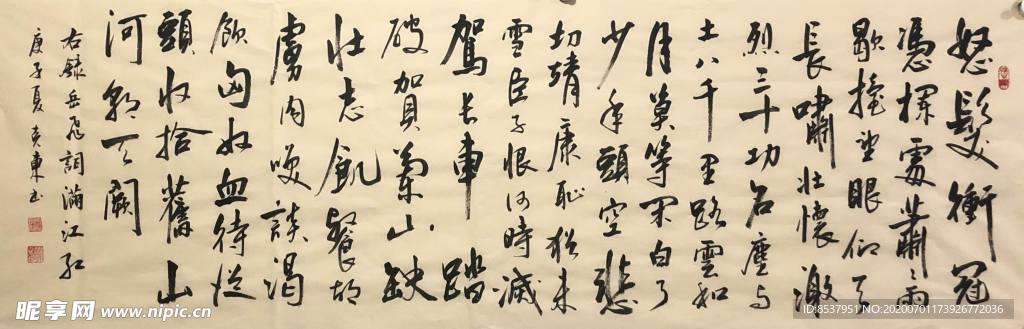 怒髮衝冠
憑欄處蕭〻雨
歇擡望眼仰天
長嘯壯懷激
烈三十功名塵與
土八千里路雲和
月莫等閑白了
少年頭空悲
切靖康恥猶未
雪臣子恨何時滅
駕長車踏
破賀蘭山缺
壯志飢餐胡
虜肉笑談渴
飲匈奴血待從
頭收拾舊山
河朝天闕
右錄岳飛詞滿江紅
庚子夏 東书
昵享网 www.nipic.cn
ID:8537951 NO:20200701173926772036